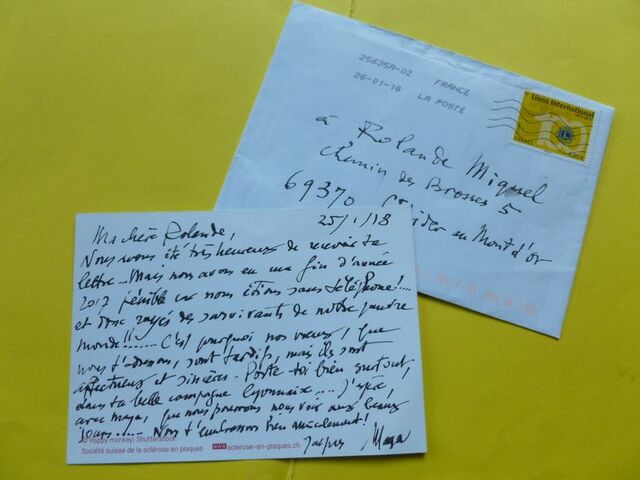 25635A-02 FRANCE
26-01-18 LA POSTE
Lions International
à Rolande Miguel
Chemin des Brosses 5
69370 St Didier en Mont d'or
25/1/18
Ma chère Rolande,
Nous avons été très heureux de recevoir ta
lettre... Mais nous avons eu une fin d'année
2017 pénible car nous étions sans téléphone!....
et donc rayés des survivants de notre pauvre
monde!!...... C'est pourquoi nos vœux, que
nous t'adressons, sont tardifs, mais ils sont
affectueux et sincères. Porte toi bien surtout,
dans ta belle campagne lyonnaise.... J'espère,
avec Maya, que nous pourrons nous voir aux beaux
jours..... Nous t'embrassons bien amicalement!
Jacques Maya
© Happy monkey; Shutterstock
Société suisse de la sclérose en plaques www.sclerose-en-plaques.ch